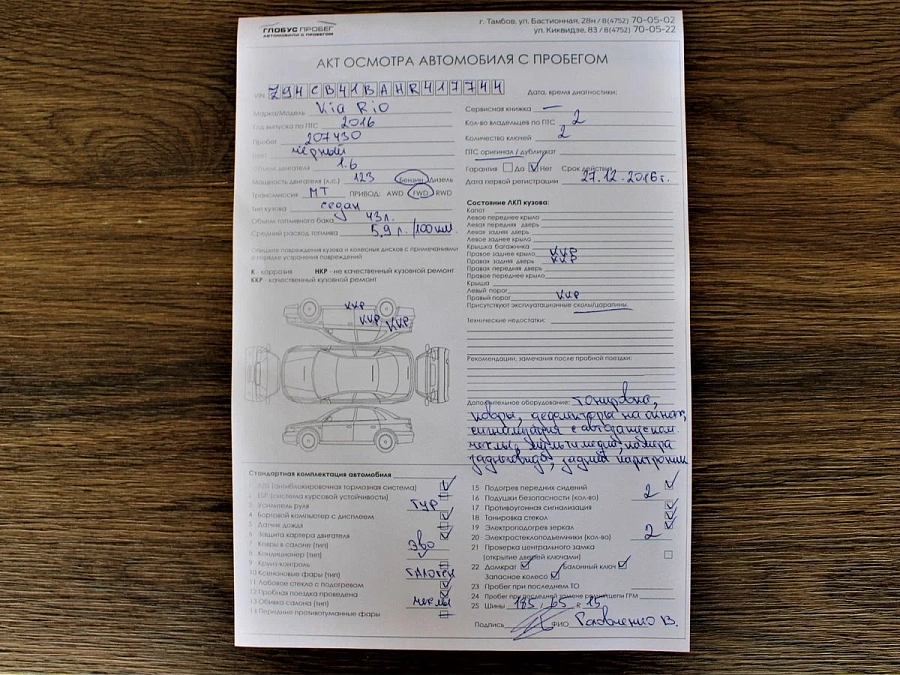 ГЛОБУС ПРОБЕГ
АВТОМОБИЛИ С ПРОБЕГОМ
г. Тамбов, ул. Бастионная, 28н / 8(4752) 70-05-02
ул. Киквидзе, 83 / 8(4752) 70-05-22
АКТ ОСМОТРА АВТОМОБИЛЯ С ПРОБЕГОМ
VIN Z94CB41BAHR417744
Дата, время диагностики:
Марка/Модель Kia Rio
Год выпуска по ПТС 2016
Пробег 207430
Цвет чёрный
Объем двигателя 1.6
Мощность двигателя (л.с.) 123 Бензин Дизель
Трансмиссия МТ ПРИВОД: AWD FWD RWD
Тип кузова седан
Объем топливного бака 43 л.
Средний расход топлива 5,9 л. /100км
Сервисная книжка —
Кол-во владельцев по ПТС 2
Количество ключей 2
ПТС оригинал / дубликат
Гарантия Да Нет Срок действия
Дата первой регистрации 27.12.2016г.
Опишите повреждения кузова и колесных дисков с примечаниями
о порядке устранения повреждений
К - коррозия НКР - не качественный кузовной ремонт
ККР - качественный кузовной ремонт
ККР
ККР ККР
Состояние ЛКП кузова:
Капот
Левое переднее крыло
Левая передняя дверь
Левая задняя дверь
Левое заднее крыло
Крышка багажника
Правое заднее крыло ККР
Правая задняя дверь ККР
Правая передняя дверь
Правое переднее крыло
Крыша
Левый порог
Правый порог ККР
Присутствуют эксплуатационные сколы/царапины.
Технические недостатки:
Рекомендации, замечания после пробной поездки:
Дополнительное оборудование: тонировка,
ковры, дефлекторы на окнах,
сигнализация с автозапуском
чехлы, мультимедиа, камера
заднего вида, задний парктроник
Стандартная комплектация автомобиля
1 ABS (антиблокировочная тормозная система)
2 ESP (система курсовой устойчивости)
3 Усилитель руля ГУР
4 Бортовой компьютер с дисплеем
5 Датчик дождя
6 Защита картера двигателя
7 Ковры в салоне (тип) эво
8 Кондиционер (тип)
9 Круиз-контроль
10 Ксеноновые фары (тип) галоген
11 Лобовое стекло с подогревом
12 Пробная поездка проведена
13 Обивка салона (тип) чехлы
14 Передние противотуманные фары
15 Подогрев передних сидений
16 Подушки безопасности (кол-во) 2
17 Противоугонная сигнализация
18 Тонировка стекол
19 Электроподогрев зеркал
20 Электростеклоподъемники (кол-во) 2
21 Проверка центрального замка
(открытие дверей ключами)
22 Домкрат Балонный ключ
Запасное колесо
23 Пробег при последнем ТО
24 Пробег при последней замене ремня/цепи ГРМ
25 Шины 185 / 65 R 15
Подпись ФИО Головченко В.